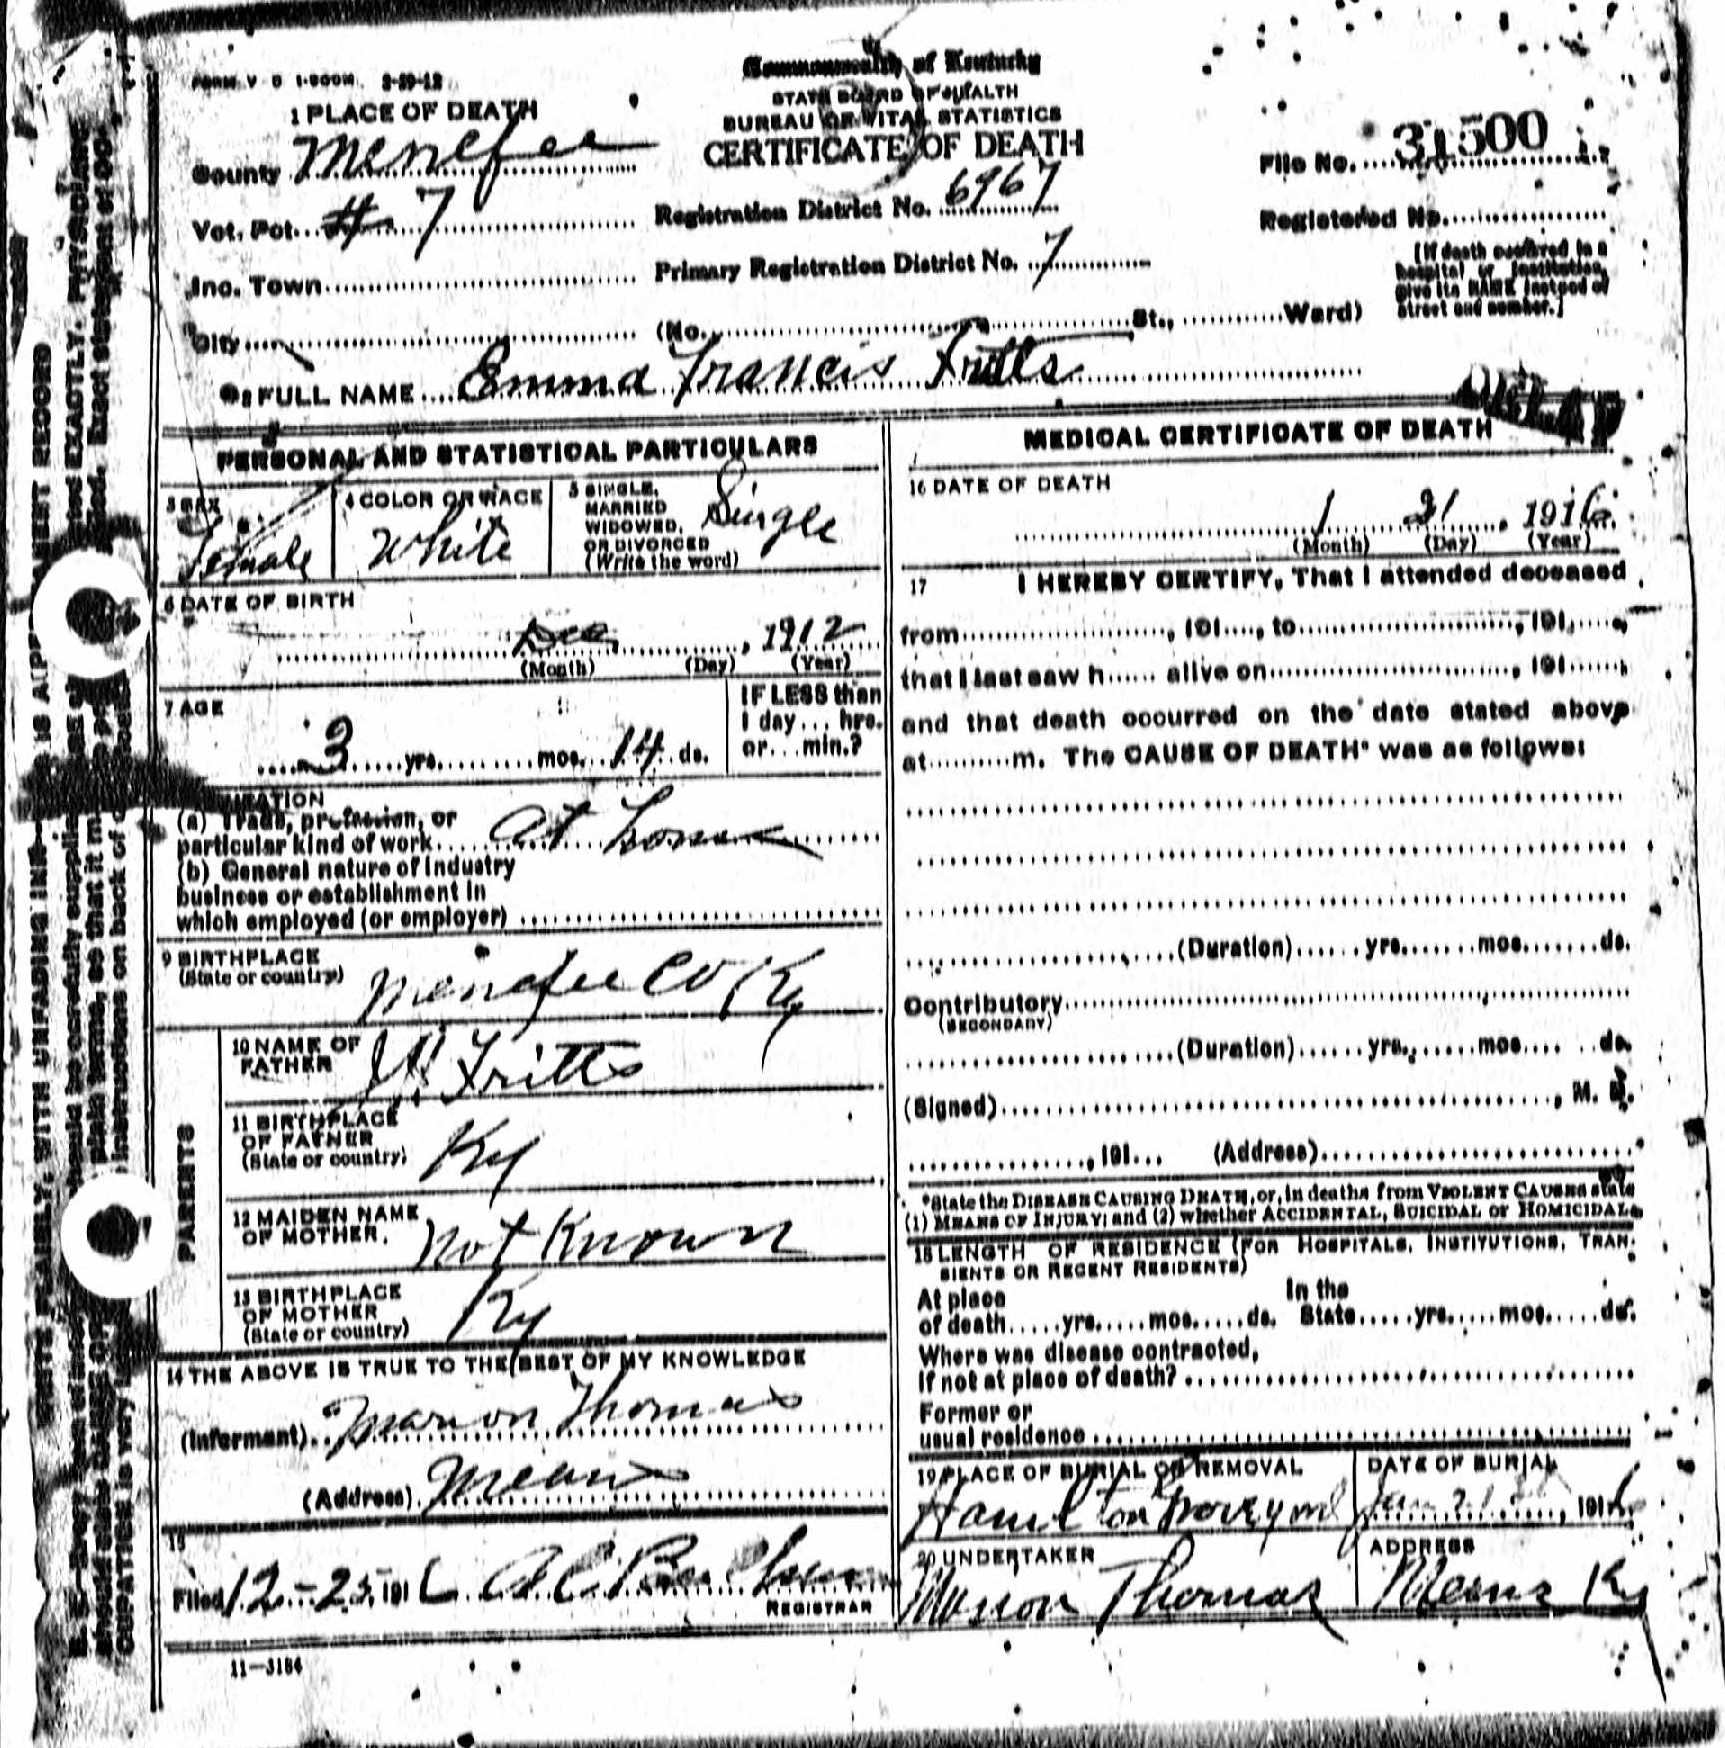 FORM V. S 1-500M 2-29-12
Commonwealth of Kentucky
STATE BOARD OF HEALTH
BUREAU OF VITAL STATISTICS
CERTIFICATE OF DEATH
1 PLACE OF DEATH
County Menefee
File No. 31500
Vot. Pct. # 7
Registration District No. 6967
Registered No.
Inc. Town
Primary Registration District No. 7
[If death occurred in a hospital or institution, give its NAME instead of street and number.]
City (No. St., Ward)
2 FULL NAME Emma Francis Fritts
PERSONAL AND STATISTICAL PARTICULARS
3 SEX
Female
4 COLOR OR RACE
White
5 SINGLE, MARRIED WIDOWED, OR DIVORCED (Write the word)
Single
6 DATE OF BIRTH
Dec, 1912
(Month) (Day) (Year)
7 AGE
3 yrs. mos. 14 ds.
IF LESS than 1 day... hrs. or... min.?
(a) Trade, profession, or
particular kind of work At home
(b) General nature of Industry
business or establishment in
which employed (or employer)
9 BIRTHPLACE
(State or country) Menefee Co Ky
PARENTS
10 NAME OF FATHER
Fritts
11 BIRTHPLACE OF FATHER (State or country)
Ky
12 MAIDEN NAME OF MOTHER.
Not Known
13 BIRTHPLACE OF MOTHER (State or country)
Ky
14 THE ABOVE IS TRUE TO THE BEST OF MY KNOWLEDGE
(Informant) Marion Thomas
(Address) Means
15
Filed 12-25 1916
REGISTRAR
11-3184
MEDICAL CERTIFICATE OF DEATH
16 DATE OF DEATH
1 21, 1916
(Month) (Day) (Year)
17 I HEREBY CERTIFY, That I attended deceased
from , 191 , to , 191 ,
that I last saw h alive on , 191 ,
and that death occurred on the date stated above
at m. The CAUSE OF DEATH* was as follows:
(Duration) yrs. mos. ds.
Contributory
(SECONDARY)
(Duration) yrs. mos. ds.
(Signed) , M. D.
, 191 (Address)
*State the DISEASE CAUSING DEATH, or, in deaths from VIOLENT CAUSES state
(1) MEANS OF INJURY; and (2) whether ACCIDENTAL, SUICIDAL or HOMICIDAL.
18 LENGTH OF RESIDENCE (FOR HOSPITALS, INSTITUTIONS, TRAN-
SIENTS OR RECENT RESIDENTS)
At place In the
of death yrs. mos. ds. State yrs. mos. ds.
Where was disease contracted,
If not at place of death?
Former or
usual residence
19 PLACE OF BURIAL OR REMOVAL
Hamilton Graveyard
DATE OF BURIAL
Jan 21, 1916
20 UNDERTAKER
Marion Thomas
ADDRESS
Means Ky